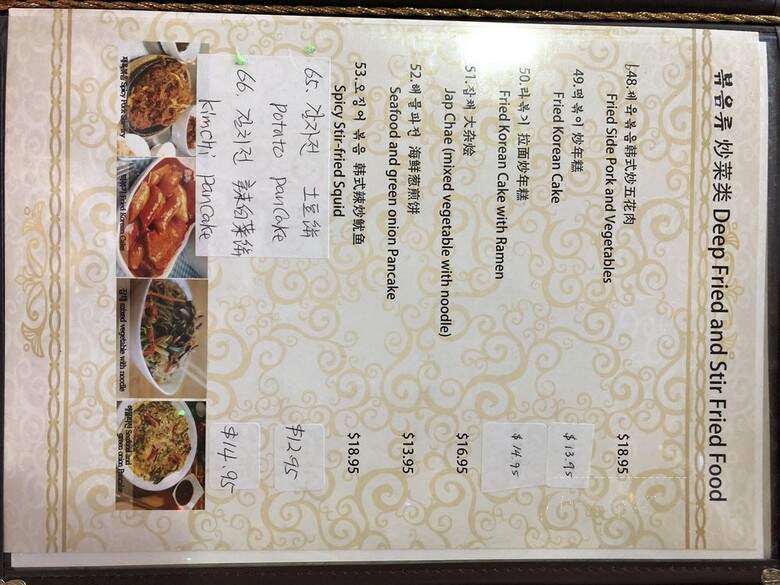 볶음류 炒菜类 Deep Fried and Stir Fried Food
48.제육볶음韩式炒五花肉 $18.95
Fried Side Pork and Vegetables
49.떡볶이 炒年糕 $13.95
Fried Korean Cake
50.라볶기 拉面炒年糕 $14.95
Fried Korean Cake with Ramen
51.잡채 大杂烩 $16.95
Jap Chae (mixed vegetable with noodle)
52.해물파전 海鲜葱煎饼 $13.95
Seafood and green onion Pancake
53.오징어 볶음 韩式辣炒鱿鱼 $18.95
Spicy Stir-fried Squid
65. 감자전 土豆餅 $12.95
potato pancake
66. 김치전 辣白菜餅 $14.95
kimchi pancake
제육볶음 Spicy Pork
떡볶이 Fried Korean Cake
잡채 mixed vegetable with noodle
해물파전 Seafood and
green onion Pancake